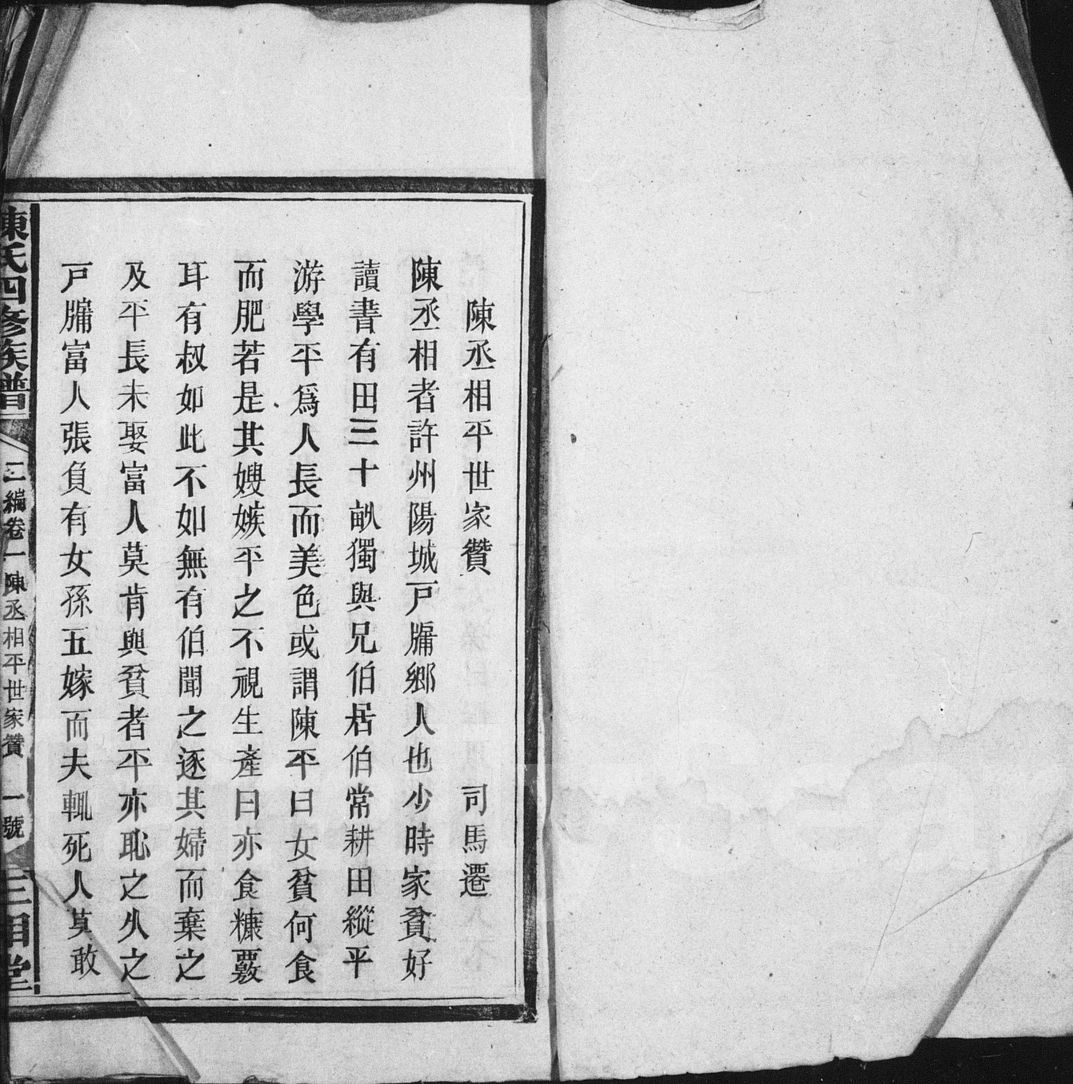 陳丞相平世家贊 司馬遷
陳丞相者許州陽城戸牖鄉人也少時家貧好
讀書有田三十畝獨與兄伯居伯常耕田縱平
游學平爲人長而美色或謂陳平曰女貧何食
而肥若是其嫂嫉平之不視生產曰亦食糠覈
耳有叔如此不如無有伯聞之逐其婦而棄之
及平長未娶富人莫肯與貧者平亦恥之久之
戸牖富人張負有女孫五嫁而夫輒死人莫敢
陳氏四修族譜 二編卷一 陳丞相平世家贊 一號 三相堂